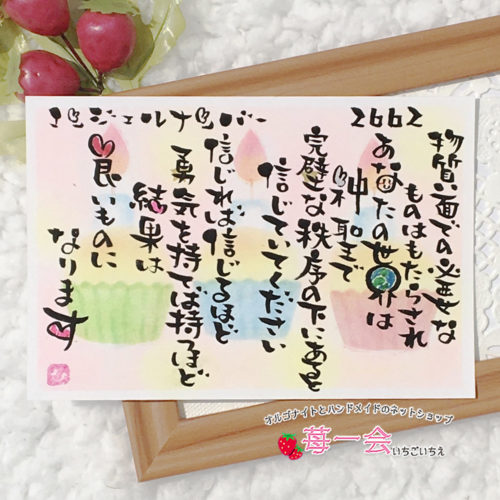 エンジェルナンバー 2662
物質面での必要な
ものはもたらされ
あなたの世界は
神聖で
完璧な秩序の下にあると
信じていてください
信じれば信じるほど
勇気を持てば持つほど
結果は
良いものに
なります
オルゴナイトとハンドメイドのネットショップ
苺一会
いちごいちえ